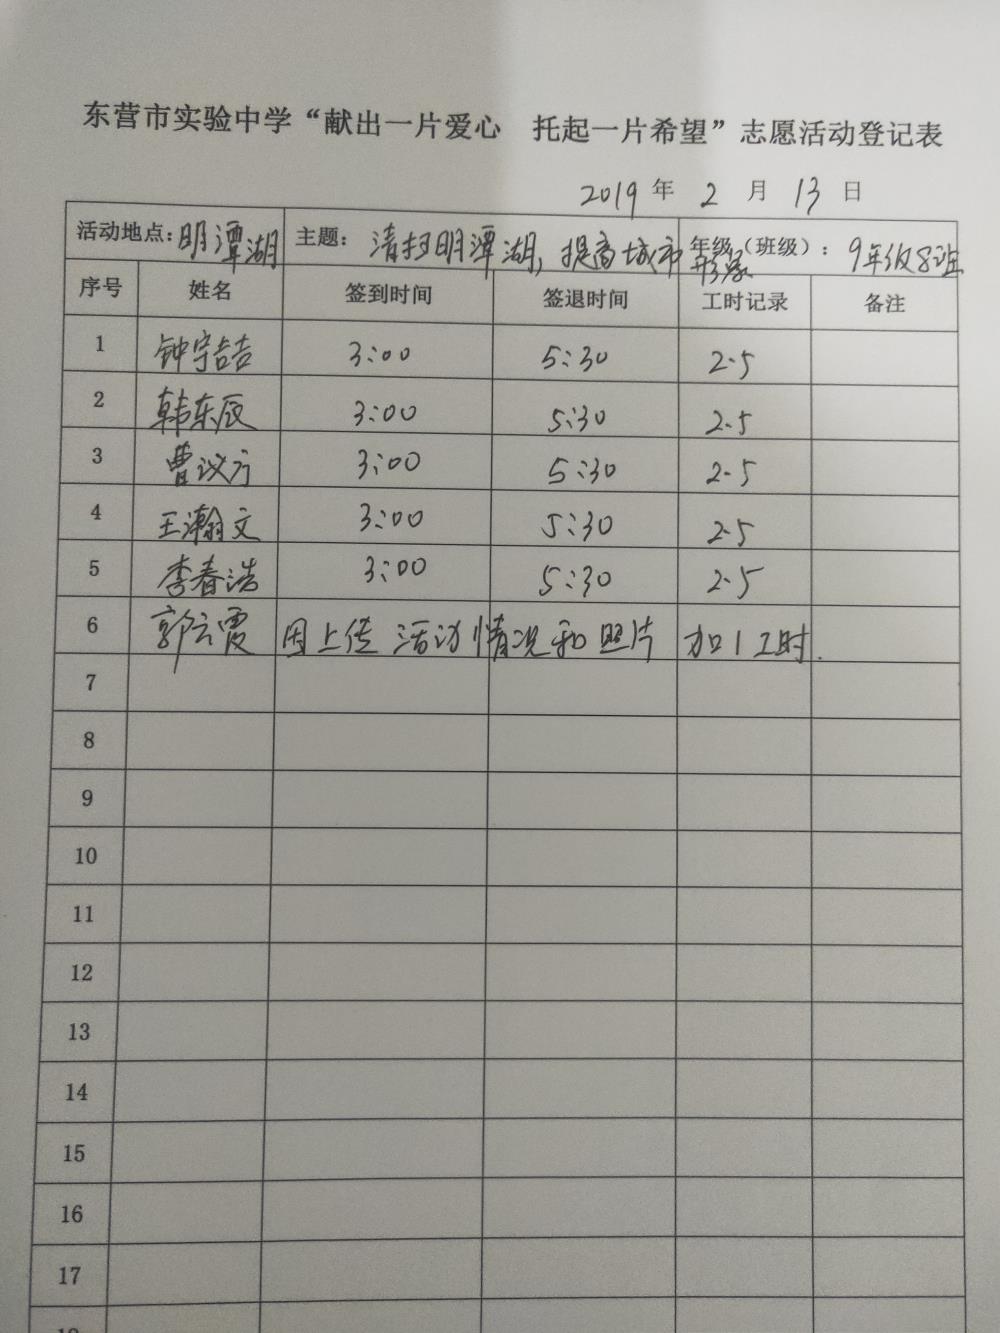 东营市实验中学“献出一片爱心 托起一片希望”志愿活动登记表
2019 年 2 月 13 日
活动地点：明潭湖 主题：清扫明潭湖，提高城市形象 年级（班级）：9年级8班
序号 姓名 签到时间 签退时间 工时记录 备注
1 钟宇喆 3:00 5:30 2.5
2 韩东辰 3:00 5:30 2.5
3 曹议方 3:00 5:30 2.5
4 王瀚文 3:00 5:30 2.5
5 李春浩 3:00 5:30 2.5
6 郭云霞 因上传活动情况和照片 加1工时.
7
8
9
10
11
12
13
14
15
16
17